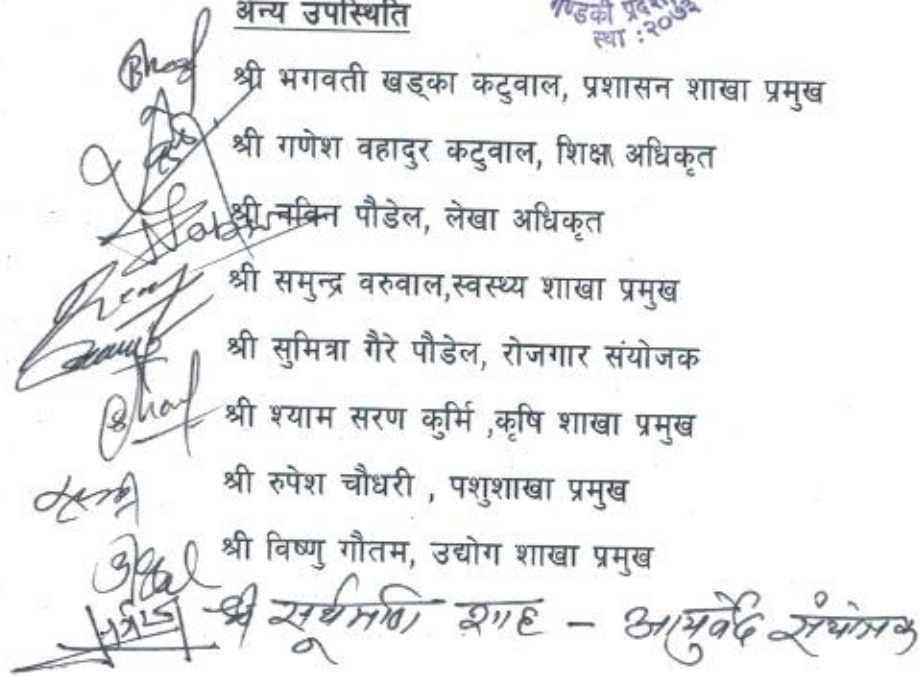 अन्य उपस्थिति
गण्डकी
स्था :२०७३
श्री भगवती खड्का कटुवाल, प्रशासन शाखा प्रमुख
श्री गणेश वहादुर कटुवाल, शिक्षा अधिकृत
श्री नविन पौडेल, लेखा अधिकृत
श्री समुन्द्र वरुवाल,स्वस्थ्य शाखा प्रमुख
श्री सुमित्रा गैरे पौडेल, रोजगार संयोजक
श्री श्याम सरण कुर्मि ,कृषि शाखा प्रमुख
श्री रुपेश चौधरी , पशुशाखा प्रमुख
श्री विष्णु गौतम, उद्योग शाखा प्रमुख
श्री सूर्यमणि शाह - आयुर्वेद संयोजक